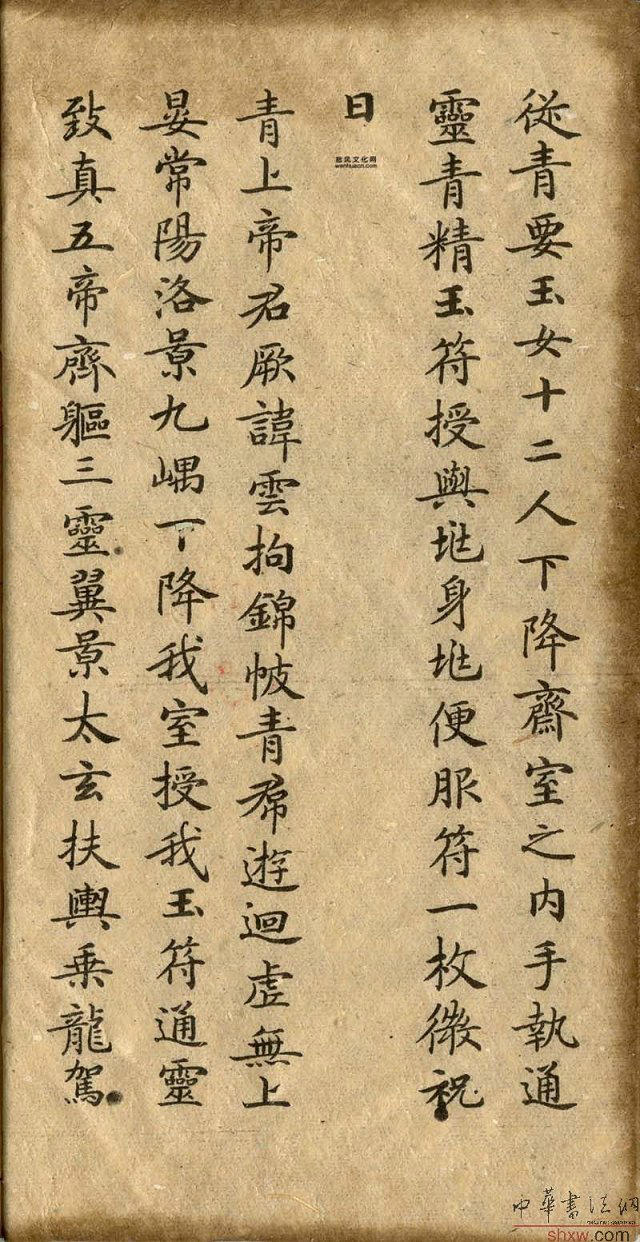 從青要玉女十二人下降齋室之内手執通
靈青精玉符授與兆身兆便服符一枚微祝
曰
青上帝君厥諱雲拘錦帔青帬遊迴虛無上
晏常陽洛景九嵎下降我室授我玉符通靈
致真五帝齊軀三靈翼景太玄扶輿乘龍駕
wenhuacn.com
中華書法網
shxw.com